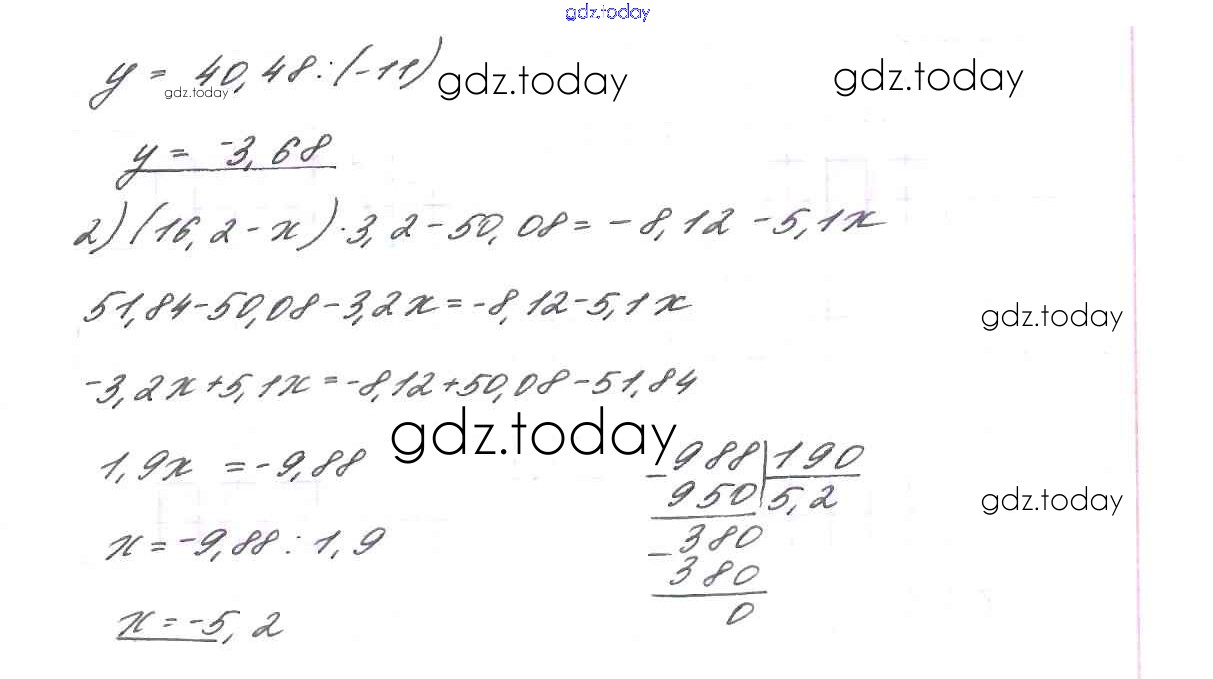 gdz.today
y = 40,48:(-11)
gdz.today
gdz.today
gdz.today
y = -3,68
2) (16,2-x)·3,2-50,08=-8,12-5,1x
51,84-50,08-3,2x=-8,12-5,1x
gdz.today
-3,2x+5,1x=-8,12+50,08-51,84
gdz.today
1,9x = -9,88
-988|190
950 5,2
gdz.today
-380
x=-9,88:1,9
380
0
x=-5,2